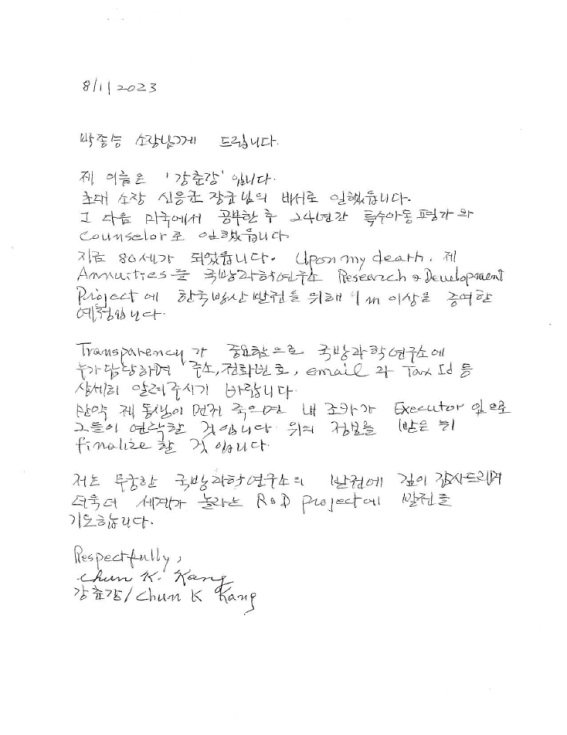 8/1/2023
박종승 소장님께 드립니다.
제 이름은 '강춘강'입니다.
초대 소장 신응균 장군님의 비서로 일했습니다.
그 다음 미국에서 공부한 후 24년간 특수아동 평가와
Counselor로 일했습니다.
지금 80세가 되었습니다. Upon my death, 제
Annuities를 국방과학연구소 Research & Development
Project에 한국방산 발전을 위해 1m 이상을 증여할
예정입니다.
Transparency가 중요함으로 국방과학연구소에
누가 담당하며 주소, 전화번호, email 과 Tax Id 등
상세히 알려주시기 바랍니다.
만약 제 동생이 먼저 죽으면 내 조카가 Executor 임으로
그들이 연락할 것입니다. 위의 정보를 받은 뒤
finalize 할 것입니다.
저는 무궁한 국방과학연구소의 발전에 깊이 감사드리며
더욱더 세계가 놀라는 R&D project에 발전을
기도합니다.
Respectfully,
Chun K. Kang
강춘강/Chun K Kang